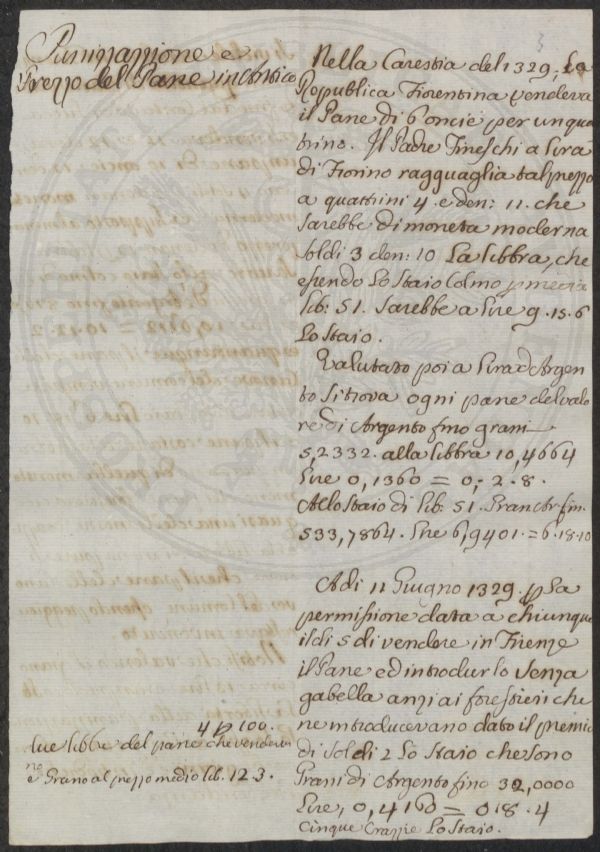 Panizzazione e
Prezzo del Pane in Antico
3
Nella Carestia del 1329, La
Repubblica Fiorentina vendeva
il Pane di 6 oncie per un qua
trino. Il Padre Fineschi a Lira
di Fiorino ragguaglia tal prezzo
a quattrini 4. e den: 11. che
sarebbe di moneta moderna
Soldi 3 den: 10 La libbra, che
essendo Lo Staio Colmo
lib: 51. Sarebbe a Lire 9. 15. 6
Lo Staio.
Valutato poi a Lira d'Argen
to si trova ogni pane del valo
re di Argento fino grani
5,2332. alla libbra 10,4664
Lire 0,1360 = 0,- 2. 8.
Allo Staio di lib: 51. Gran: Ar: fin.
533,7864. Lire 6,9401. = 6. 18. 10
Adi 11 Giugno 1329. p La
permissione data a chiunque
il di 5 di vendere in Firenze
il Pane ed introdurlo Senza
gabella anzi ai forestieri che
ne introducevano dato il premio
di Soldi 2 Lo Staio che sono
Grani di Argento fino 32,0000
Lire, 0,4160 = 0. 8. 4
Cinque Crazie Lo Staio.
4 p 100.
due libbre del pane che vendeva
no
e Grano al prezzo medio lib. 12. 3.